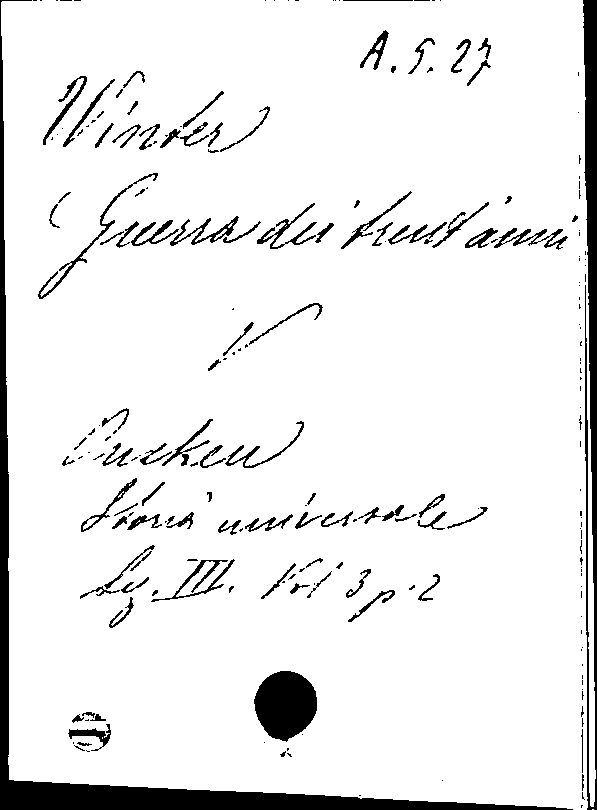 A.5.27
Winter
Guerra dei trent'anni
V
Oncken
Storia universale
Sez. III. Vol 3 p. 2